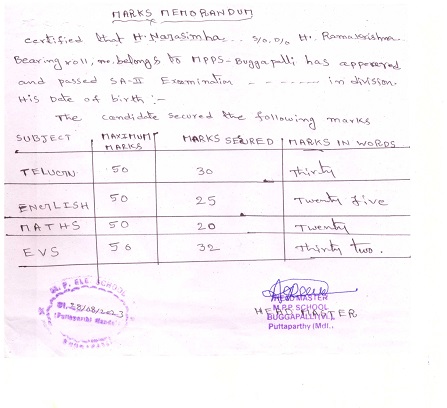 MARKS MEMORANDUM
certified that H. Narasimha.. S/o, D/o H. Ramakrishna.
Bearing roll, no. belongs to MPPS-Buggapalli has appeared
and passed SA-II Examination - - - - - - - in division.
His Date of birth :-
The candidate secured the following marks
SUBJECT MAXIMUM MARKS MARKS SECURED MARKS IN WORDS
TELUGU 50 30 Thirty
ENGLISH 50 25 Twenty five
MATHS 50 20 Twenty
EVS 50 32 Thirty two.
M.P. ELE SCHOOL
Dt. 28/08/2023
(Puttaparthi Mandal)
HEAD MASTER
M.P.P. SCHOOL
HEAD MASTER
BUGGAPALLI (V)
Puttaparthy (Mdl..